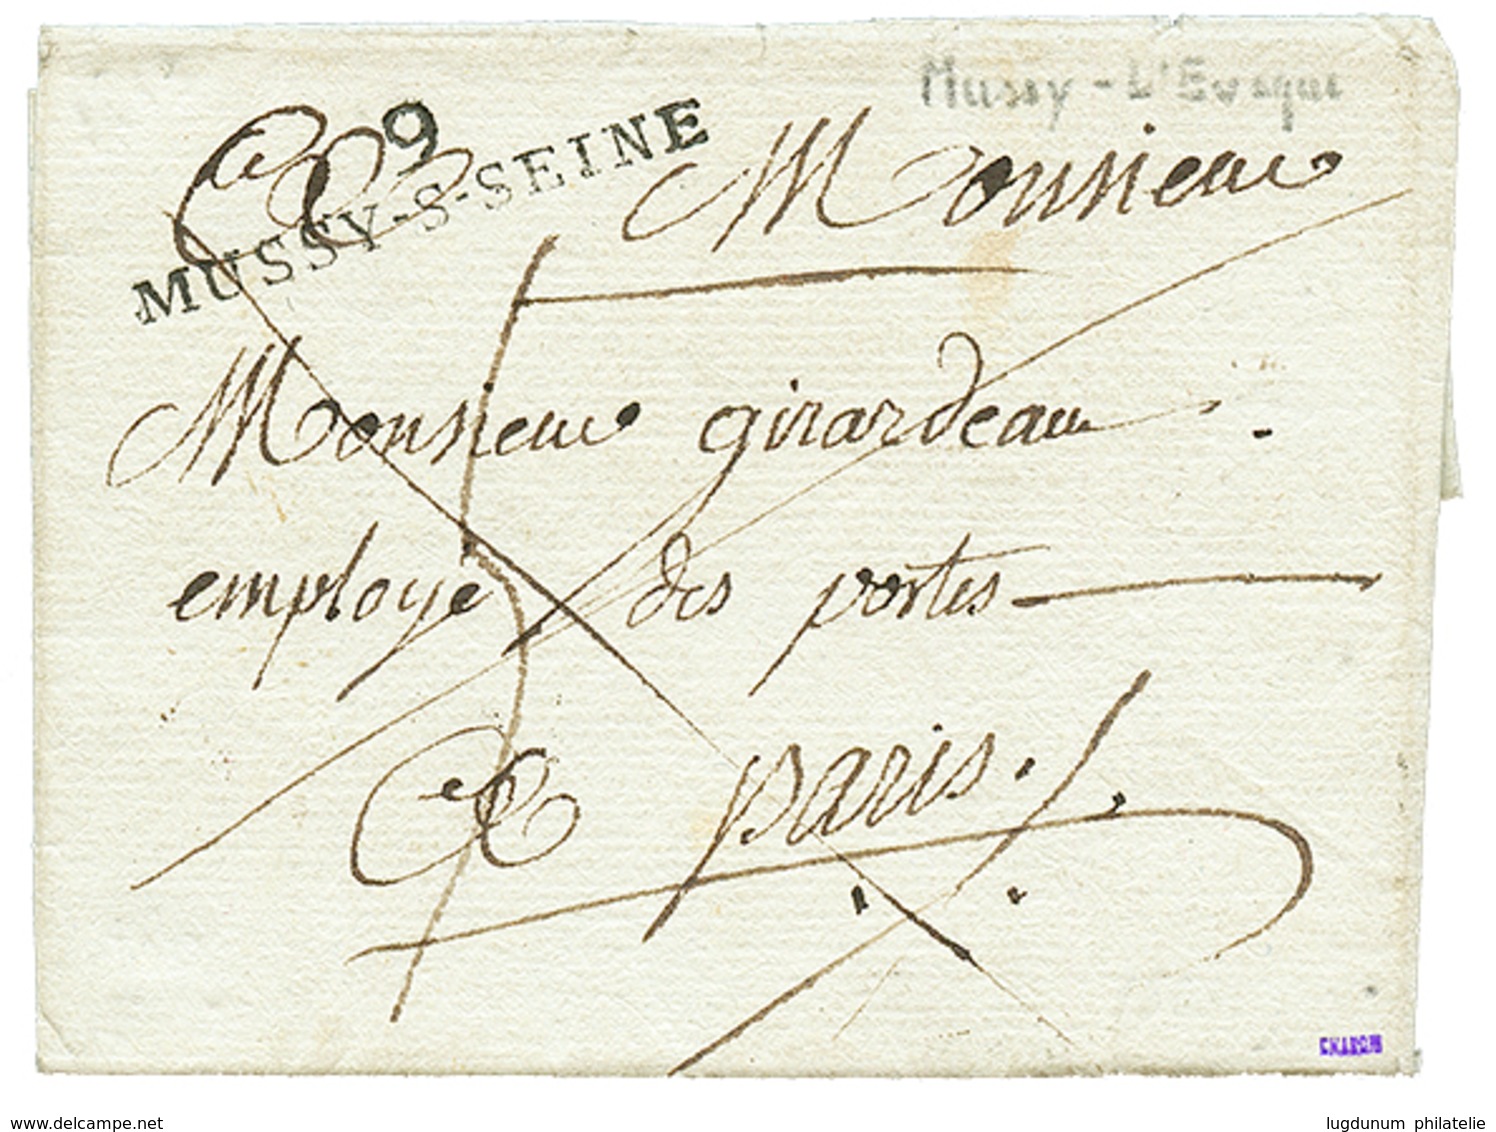 Mussy-L'Eveque
9
MUSSY-S-SEINE
A Monsieur
Monsieur girardeau
employé des postes
A paris.
CHARON
delcampe.net
lugdunum philatelie